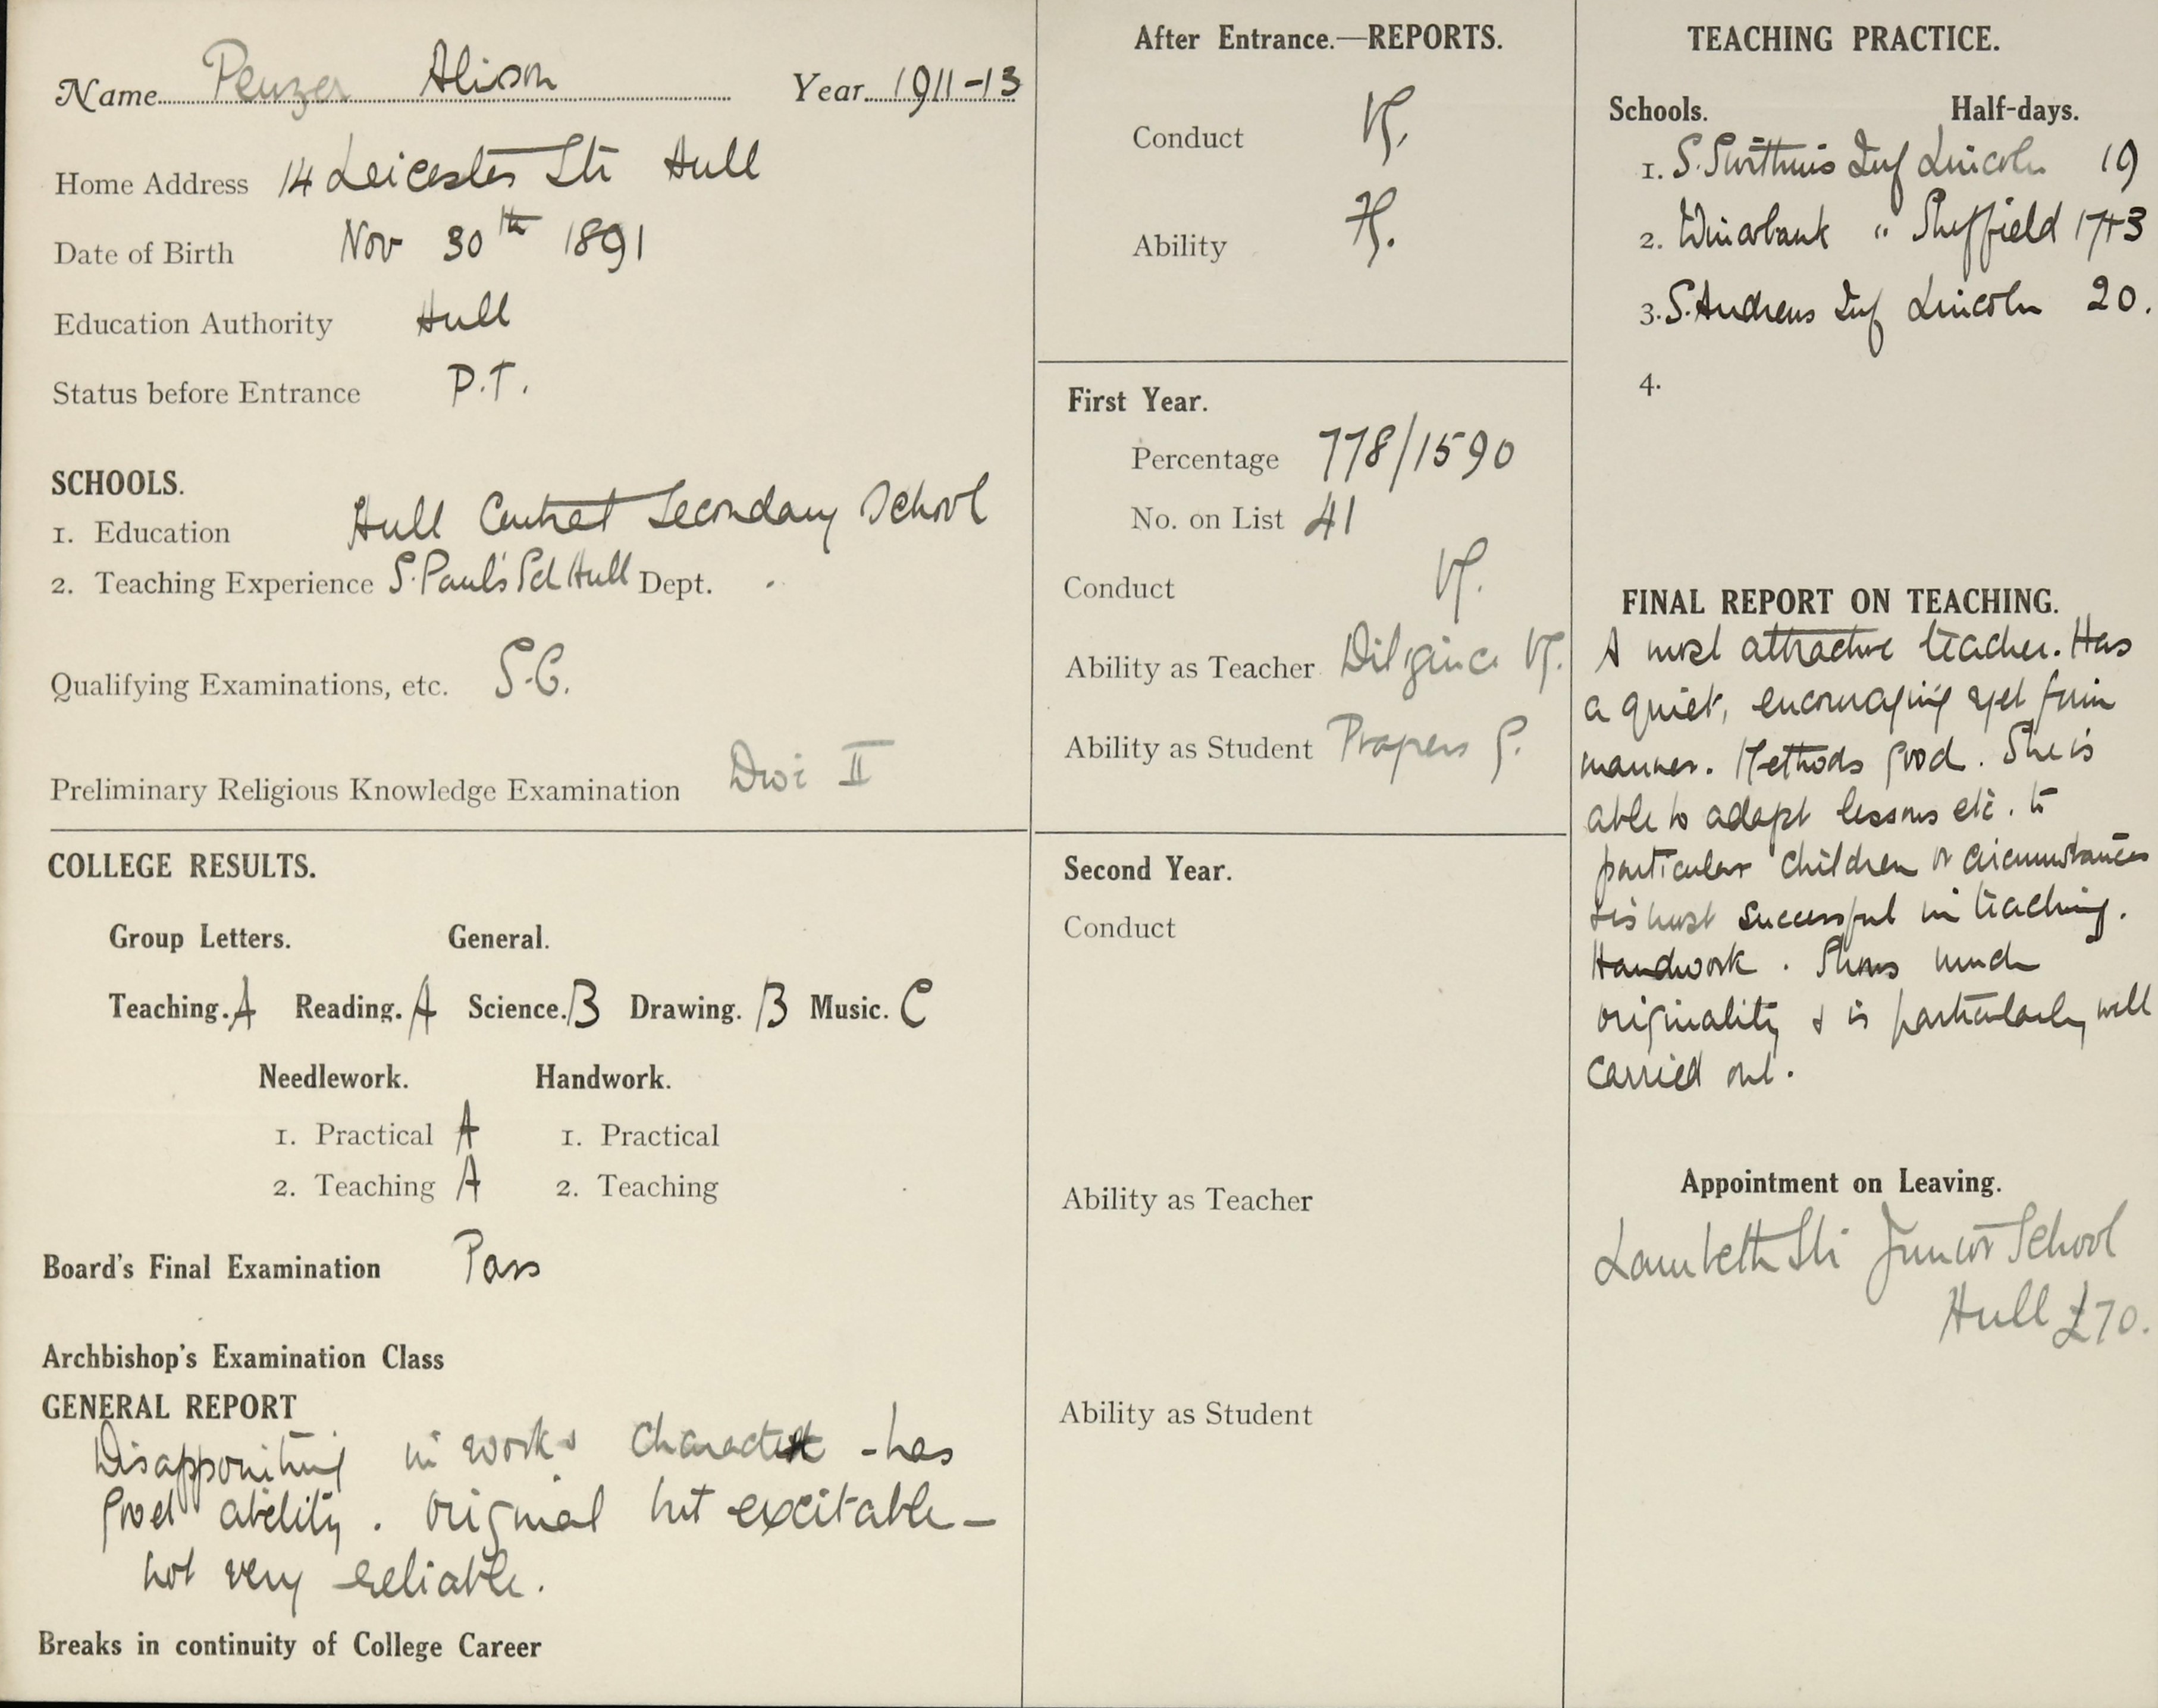 Name Penzer Alison Year 1911-13
Home Address 14 Leicester Str Hull
Date of Birth Nov 30th 1891
Education Authority Hull
Status before Entrance P.T.
SCHOOLS.
1. Education Hull Central Secondary School
2. Teaching Experience S. Paul's Sch Hull Dept.
Qualifying Examinations, etc. S.C.
Preliminary Religious Knowledge Examination Div II
COLLEGE RESULTS.
Group Letters. General.
Teaching. A Reading. A Science. B Drawing. B Music. C
Needlework. Handwork.
1. Practical A 1. Practical
2. Teaching A 2. Teaching
Board's Final Examination Pass
Archbishop's Examination Class
GENERAL REPORT
Disappointing in work & character - has
good ability. Original but excitable -
not very reliable.
Breaks in continuity of College Career
After Entrance.—REPORTS.
Conduct
Ability
First Year.
Percentage 778/1590
No. on List 41
Conduct
Ability as Teacher Diligence
Ability as Student Progress G.
Second Year.
Conduct
Ability as Teacher
Ability as Student
TEACHING PRACTICE.
Schools. Half-days.
1. S. Swithins Inf Lincoln 19
2. Wincobank " Sheffield 17+3
3. S. Andrews Inf Lincoln 20.
4.
FINAL REPORT ON TEACHING.
A most attractive teacher. Has
a quiet, encouraging yet firm
manner. Methods good. She is
able to adapt lessons etc. to
particular children or circumstances
& is most successful in teaching.
Handwork. Shows much
originality & is particularly well
carried out.
Appointment on Leaving.
Lambeth Str Junior School
Hull £70.